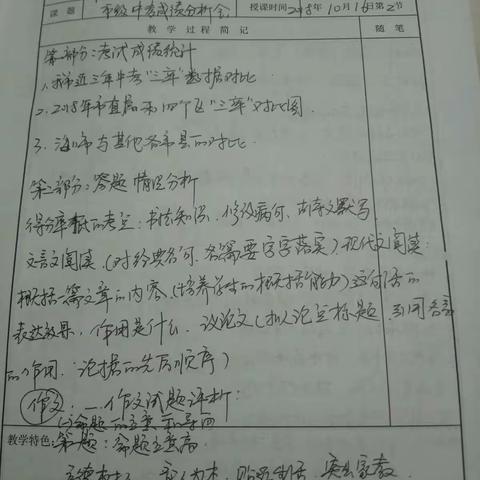 课题 市级中考成绩分析会 授课时间2018年10月16日第2节
教 学 过 程 简 记 随 笔
第一部分：考试成绩统计
1、我市近三年中考“三率”数据对比
2、2018年市直属和四个区“三率”对比图.
3、海口市与其他各市县的对比.
第二部分：答题情况分析
得分率低的考点：书法知识、修改病句、古诗文默写
文言文阅读（对经典名句，各需要字字落实）、现代文阅读：
概括一篇文章的内容、（培养学生的概括能力）这句话的
表达效果，作用是什么. 议论文（拟论点标题、引用名言
的作用，论据的先后顺序）
作文：一、作文试题评析：
(1)命题的立意和导向
教学特色：第一题：命题立意高
，以人为本，贴近生活，